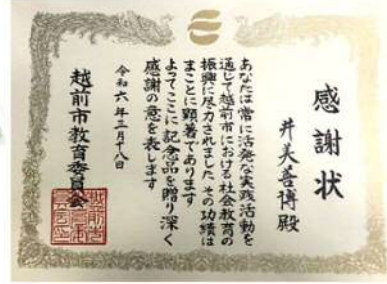 感謝状
井美善博殿
あなたは常に活発な実践活動を
通じて越前市における社会教育の
振興に尽力されました その功績は
まことに顕著であります
よってここに記念品を贈り深く
感謝の意を表します
令和六年三月十八日
越前市教育委員会